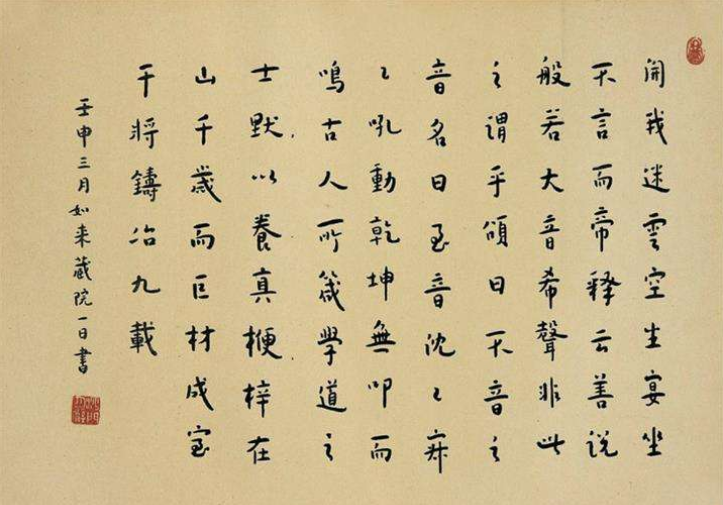 開我迷雲空生宴坐
不言而帝釋云善説
般若大音希聲非此
之謂乎頌曰不音之
音名曰至音沈〻寂
〻吼動乾坤無叩而
鳴古人所箴學道之
士默以養真楩梓在
山千歲而巨材成室
干將鑄冶九載
壬申三月如來藏院一日書